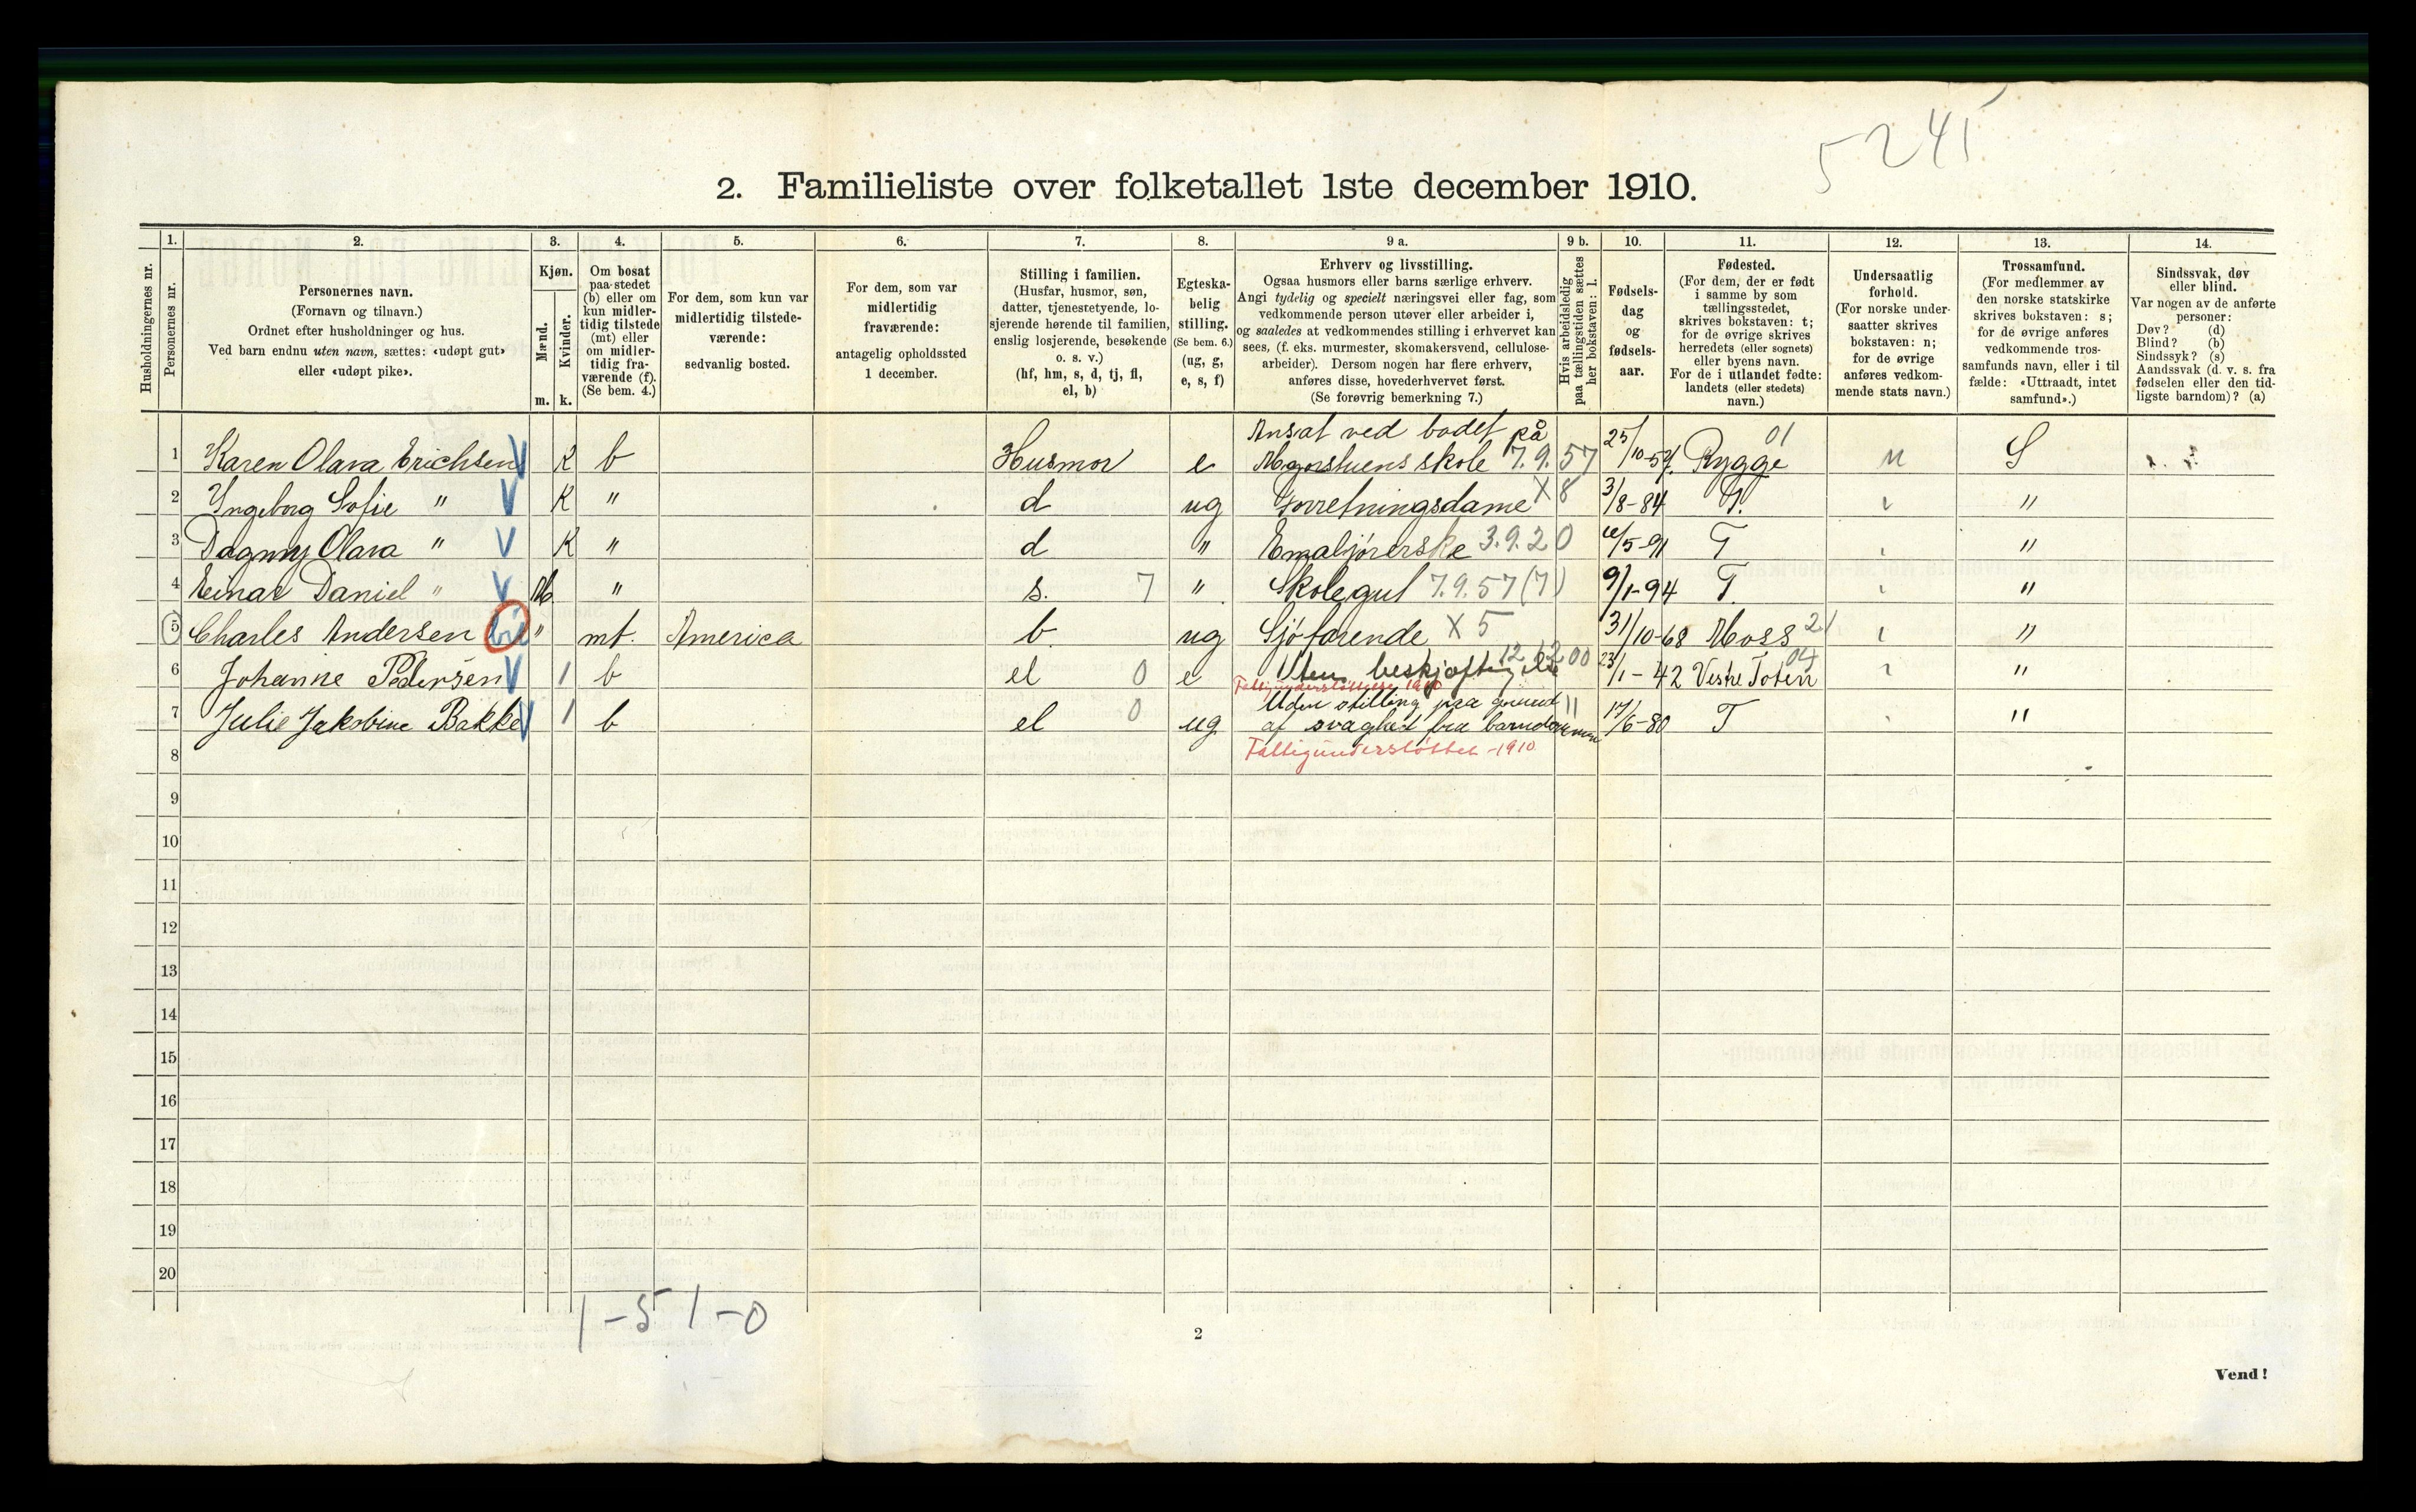 5245
2. Familieliste over folketallet 1ste december 1910.
Husholdningernes nr.
1. Personernes nr.
2. Personernes navn. (Fornavn og tilnavn.) Ordnet efter husholdninger og hus. Ved barn endnu uten navn, sættes: «udøpt gut» eller «udøpt pike».
3. Kjøn. Mænd. m. Kvinder. k.
4. Om bosat paa stedet (b) eller om kun midlertidig tilstede (mt) eller om midlertidig fraværende (f). (Se bem. 4.)
5. For dem, som kun var midlertidig tilstedeværende: sedvanlig bosted.
6. For dem, som var midlertidig fraværende: antagelig opholdssted 1 december.
7. Stilling i familien. (Husfar, husmor, søn, datter, tjenestetyende, losjerende hørende til familien, enslig losjerende, besøkende o. s. v.) (hf, hm, s, d, tj, fl, el, b)
8. Egteskabelig stilling. (Se bem. 6.) (ug, g, e, s, f)
9 a. Erhverv og livsstilling. Ogsaa husmors eller barns særlige erhverv. Angi tydelig og specielt næringsvei eller fag, som vedkommende person utøver eller arbeider i, og saaledes at vedkommendes stilling i erhvervet kan sees, (f. eks. murmester, skomakersvend, cellulosearbeider). Dersom nogen har flere erhverv, anføres disse, hovederhvervet først. (Se forøvrig bemerkning 7.)
9 b. Hvis arbeidsledig paa tællingstiden sættes her bokstaven: l.
10. Fødselsdag og fødselsaar.
11. Fødested. (For dem, der er født i samme by som tællingsstedet, skrives bokstaven: t; for de øvrige skrives herredets (eller sognets) eller byens navn. For de i utlandet fødte: landets (eller stedets) navn.)
12. Undersaatlig forhold. (For norske undersaatter skrives bokstaven: n; for de øvrige anføres vedkommende stats navn.)
13. Trossamfund. (For medlemmer av den norske statskirke skrives bokstaven: s; for de øvrige anføres vedkommende trossamfunds navn, eller i tilfælde: «Uttraadt, intet samfund».)
14. Sindssvak, døv eller blind. Var nogen av de anførte personer: Døv? (d) Blind? (b) Sindssyk? (s) Aandssvak (d. v. s. fra fødselen eller den tidligste barndom)? (a)
1 Karen Olava Erichsen V K b Husmor e Ansat ved badet på Majorstuens skole 7.9.57 25/10-57. Rygge 01 n S
2 Yngeborg Sofie " V K " d ug Forretningsdame X 8 3/8-84 T. "
3 Dagny Olava " V K " d " Emaljörerske 3.9.20 /5-91 T "
4 Einar Daniel " V M. " s. 7 " Skolegut 7.9.57 (7) 9/1-94 T. "
5 Charles Andersen " mt. America b. ug Sjöfarende X 5 31/10-68 Moss 21 "
6 Johanne Pedersen V 1 b el 0 e Uten beskjæftigelse 23/1-42 Vestre Toten 04 "
Fattigunderstöttelse 1910
7 Julie Jakobine Bakke V 1 b el 0 ug Uden stilling paa grund af svaghed fra barndommen 17/6-80 T "
Fattigunderstöttet - 1910
8
9
10
11
12
13
14
15
16
17
18
19
20
1-5 1-0
2
Vend!